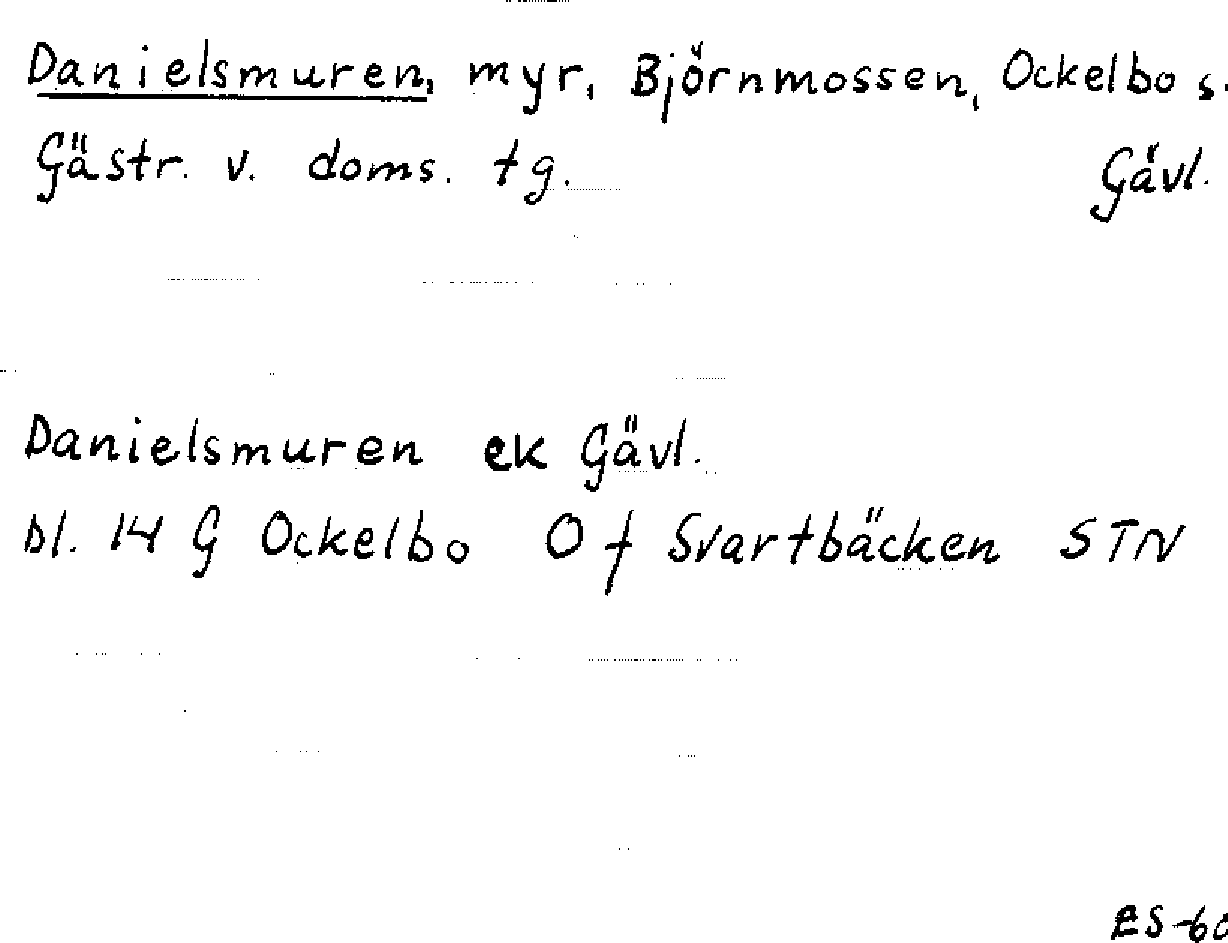 Danielsmuren, myr, Björnmossen, Ockelbo s.
Gästr. v. doms. tg. Gävl.
Danielsmuren ek Gävl.
bl. 14 G Ockelbo O f Svartbäcken STN